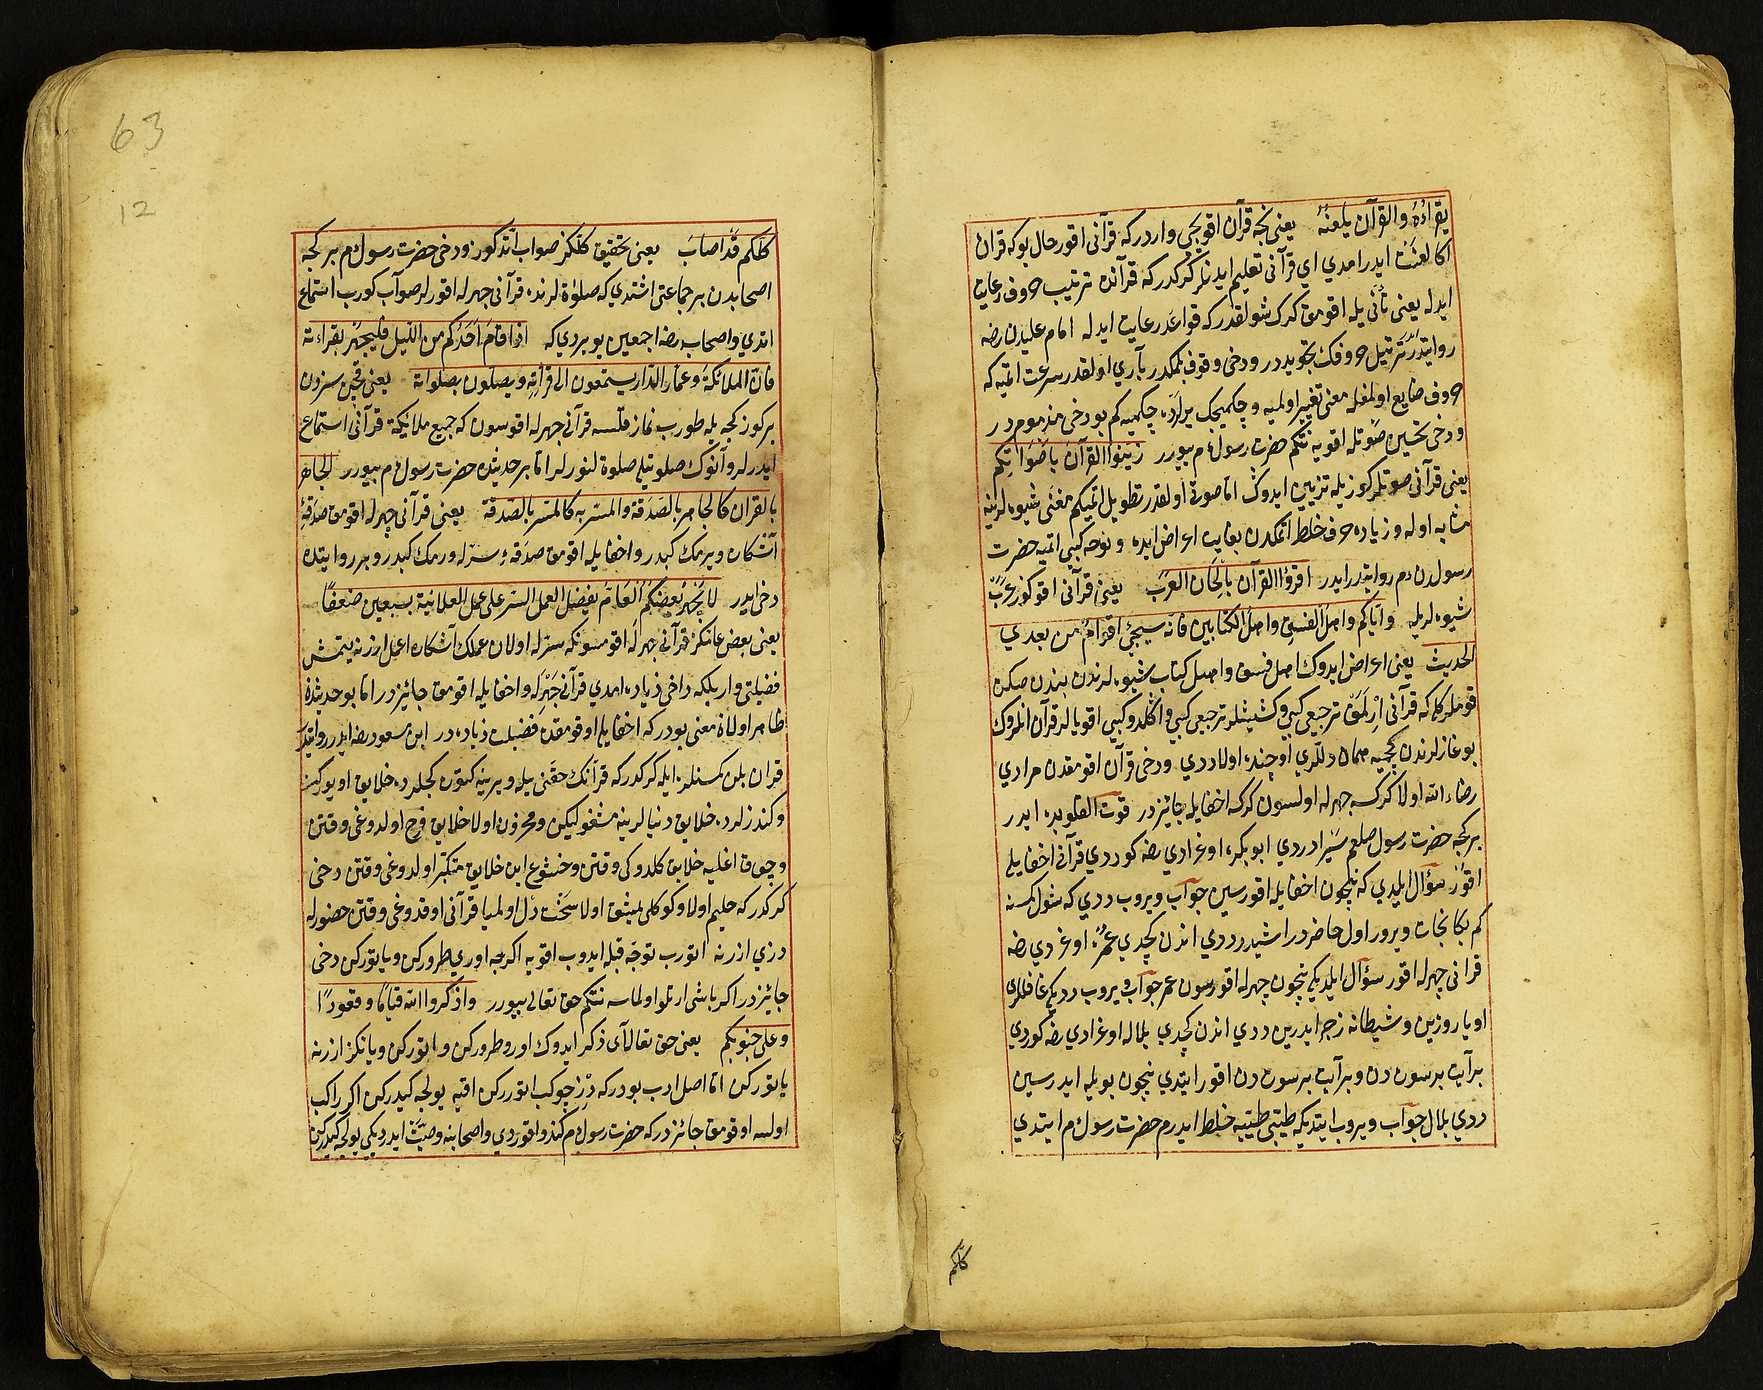 يقرأه والقرآن يلعنه يعني نجه قرآن اقويجي واردر كه قرآنی اقور حال بوكه قران
اكا لعنت ايدر امدي اي قرآنی تعليم ايدنلر كركدر كه قرآنده ترتيب حروف رعايت
ايده يعني تأنی يله اقومق كرك شولقدر كه قواعد رعايت ايده امام عليدن رضه
روايتدر ترتيل حروفك تجويددر ودخی وقوف بلمكدر بآري اولقدر سرعت اتميه كه
حروف ضايع اولمغله معنی تغير اولميه وچكميجك يرلرده چكميه كم بودخی مذمومدر
ودخی تحسين صوتله اقويه نتكم حضرت رسول م بيورر زينوا القرآن باصواتكم
يعني قرآنی صوتلركوزيله تزيين ايدوك اما صوتی اولقدر تطويل اتميكم مغنی شيوه لرينه
مشابه اوله وزياده حرف خلط اتمكدن بغايت اعراض ايده ونوحه كبی اتميه حضرت
رسولدن م روايتدر ايدر اقرؤا القرآن بالحان العرب يعني قرآنی اقوكوز عرب
شيوه لريله واياكم واهل الفسق واهل الكتابين فانه سيجئ اقوام من بعدي
الحديث يعني اعراض ايدوك اهل فسق واهل كتاب شيوه لرندن بندن صكره
قوملر كله كه قرآنی ترجيعی كبی وكشيشلر ترجيعی كبی اقويالر قرآن انلروك
بوغازلرندن كچميه همان دللري اوچنده اولا ددي ودخی قرآن اقومقدن مرادي
رضاء الله اولا كركسه جهرله اولسون كركه اخفايله جائزدر قوت القلوبده ايدر
بركجه حضرت رسول صلعم سيرادردي ابوبكره اوغرادي رضه كوردي قرآنی اخفايله
اقور سؤال ايلدي كه نيچون اخفايله اقورسين جوآب ويروب ددي كه شول كسنه
كم بكا نجات ويرور اول حاضردر اشيدر ددي اندن كچدي عمره اوغردي رضه
قرانی جهرله اقور سؤال ايلديكه نيچون جهرله اقورسون عمر جوآب ويروب ددی كه غافللری
اوياروزين وشيطانه زجر ايدرين ددي اندن كچدي بلاله اوغرادي رضه كوردي
برآيت برسوره دن وبرآيت برسوره دن اقور ايتدي نيچون بويله ايدرسين
ددي بلال جوآب ويروب ايتديكه طيبی طيبه خلط ايدرم حضرت رسول م ايتدي
كلكم
63
12
كلكم قد اصاب يعني تحقيق كلكز صواب اتدكوز ودخی حضرت رسول م بركجه
اصحابدن برجماعتی اشتدي كه صلوة لرنده قرآنی جهرله اقورلر صوآب كورب استماع
اتدي واصحاب رضه اجمعين بويردي كه اذا قام احدكم من الليل فليجهر بقراءته
فان الملائكة وعمار الدار يستمعون الى قرأته ويصلون بصلواته يعني قچن سزدن
بركوز كجه يله طورب نماز قلسه قرآنی جهرله اقوسون كه جميع ملائيكة قرآنی استماع
ايدرلر وآنوك صلوتيله صلوة قلورلر اما برحديثده حضرت رسول م بيورر الجاهر
بالقران كالجاهر بالصدقة والمسر به كالمسر بالصدقة يعني قرآنی جهرله اقومق صدقه
آشكاره ويرمك كبدر واخفايله اقومق صدقه سرله ورمك كبدر وبر روايتده
دخی ايدر لا يجهر بعضكم يفضل العمل السر على عمل العلانية بسبعين ضعفا
يعني بعض قرآنی جهرله اقومسونكه سرله اولان عملك آشكاره اعمل ازرنه يتمش
فضيلتی وار بلكه داخی زياده امدي قرآنی جهرله واخفايله اقومق جائزدر اما بوحديثدة
ظاهر اولان معنی بودر كه اخفايله اوقومقده فضيلت زياده در ابن مسعود رضه ايدر روايتدر
قران بلن كسنلره ايله كركدر كه قرآنك حقنی يله ويرينه كتوره كجلرده خلايق اويوركن
وكندزلرده خلايق دنيالرينه مشغوليكن ومحزون اولا خلايق فرح اولدوغی وقتن
وچوق اغليه خلايق كلدوكی وقتن وخشوع ايده خلايق متكبر اولدوغی وقتن دخی
كركدر كه حليم اولا وكوكلی اولا سخت دل اولميا قرآنی اوقدوغی وقتن حضورله
دزي ازرنه اتورب توجه قبله ايدوب اقويه اكرچه اوري طروركن ويا يتوركن دخی
جائزدر اكر باشی ارتلو اولماسه نتكم حق تعالى بيورر واذكروا الله قياما وقعودا
وعلى جنوبكم يعني حق تعالآی ذكر ايدوك اورو طروركن واتوركن ويانكز ازرنه
ياتوركن اما اصل ادب بودركه ديز چوكب اتوررك اقيه يولجه كيدركن اكر راكب
اولسه اوقومق جائزدر كه حضرت رسول م كندو اقوردي واصحابنه وصيت ايدرديكی يولجه كيدركن